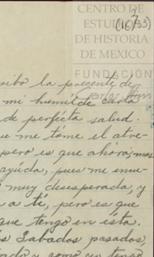 CENTRO DE
ESTUDIOS
DE HISTORIA
DE MEXICO
FUNDACIÓN
la presente de
mi humilde carta
de perfecta salud.
me tomé el atre-
pero es que ahora, mas
ayúda, pues me encu-
muy desesperada, y
a ti, pero es que
que tengo en ésta.
Sabados pasados,